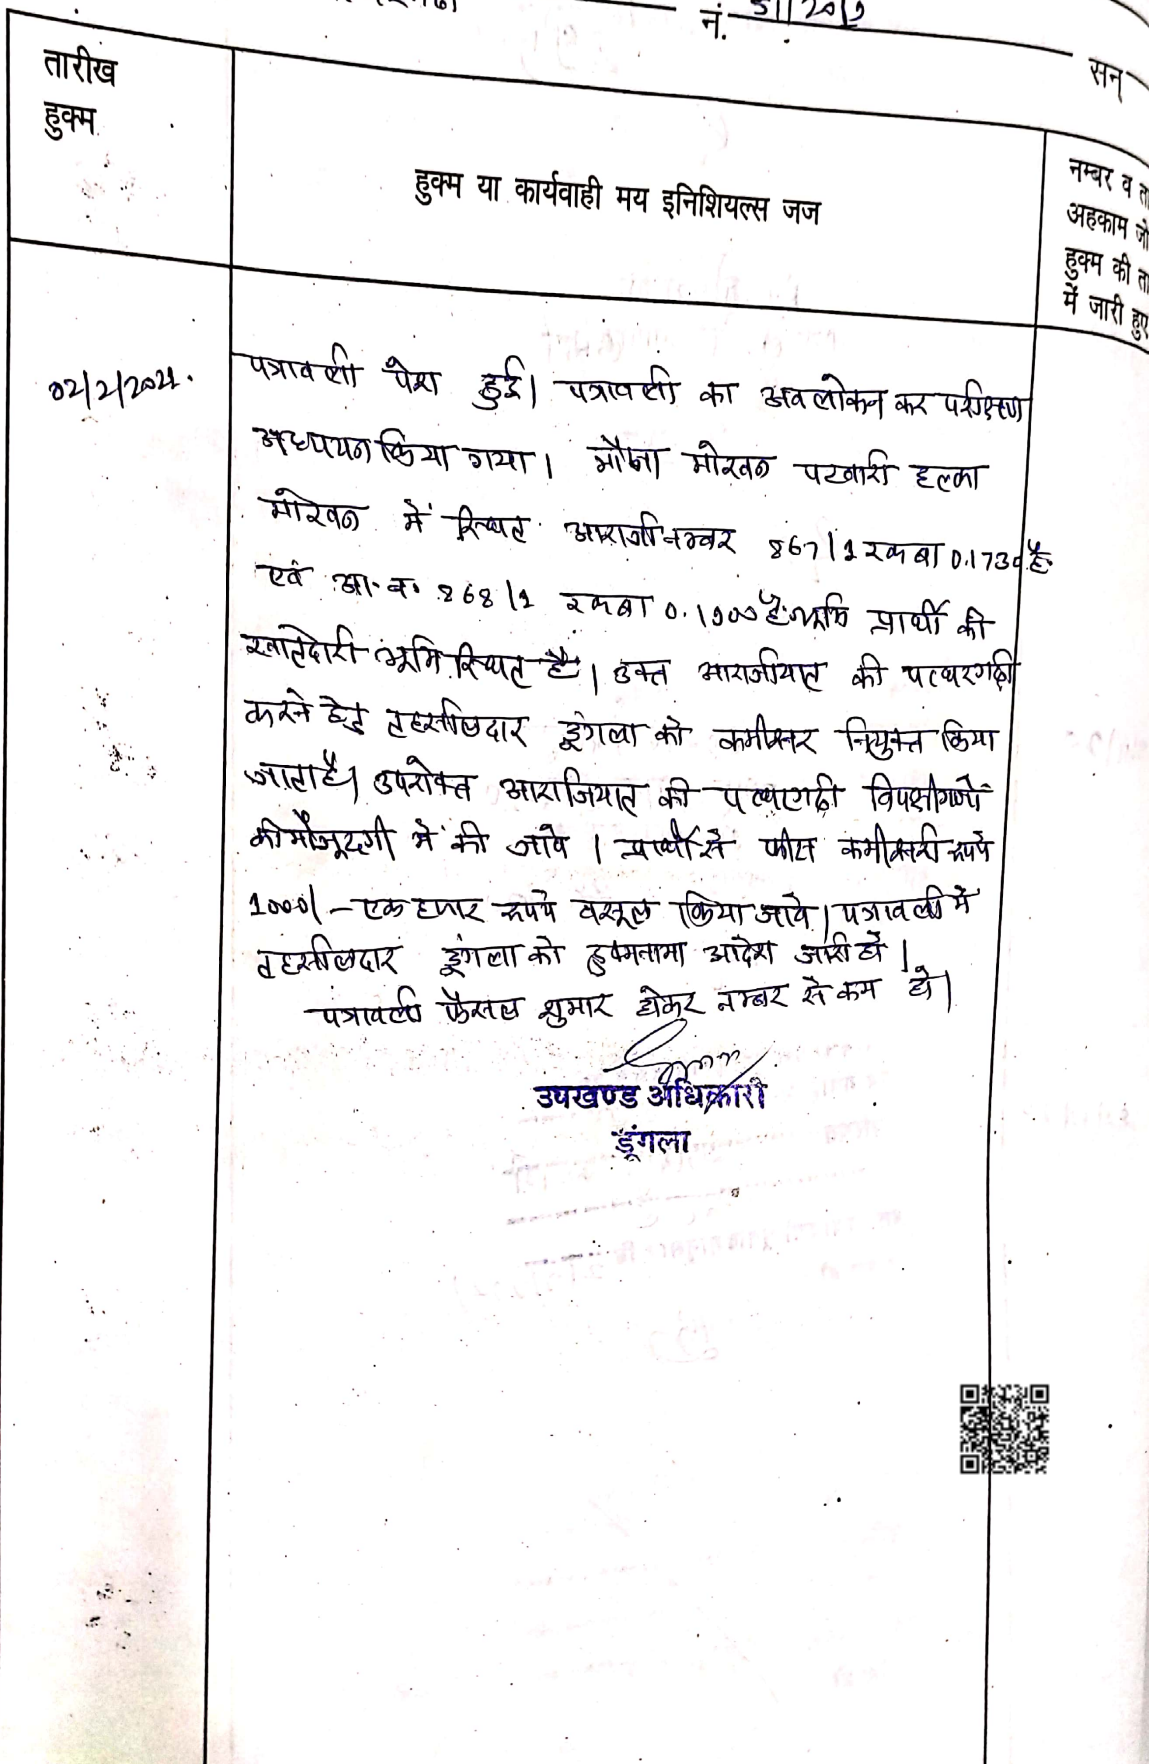 नं. 51/2019
सन्
तारीख
हुक्म
हुक्म या कार्यवाही मय इनिशियल्स जज
नम्बर व ता
अहकाम जो
हुक्म की ता
में जारी हुए
02/2/2021.
पत्रावली पेश हुई। पत्रावली का अवलोकन कर परीक्षण
अध्ययन किया गया। मौजा मोरवन पटवारी हल्का
मोरवन में स्थित आराजी नम्बर 867/1 रकबा 0.1730 है.
एवं आ.न. 868/1 रकबा 0.1900 है. भूमि प्रार्थी की
खातेदारी भूमि स्थित है। उक्त आराजीयात की पत्थरगढी
करने हेतु तहसीलदार डूंगला को कमीश्नर नियुक्त किया
जाता है। उपरोक्त आराजियात की पत्थरगढी विपक्षीगणों
की मौजूदगी में की जावे। प्रार्थी से फीस कमीश्नरी रूपये
1000/- एक हजार रूपये वसूल किया जावे। पत्रावली में
तहसीलदार डूंगला को हुक्मनामा आदेश जारी हो।
पत्रावली फैसल शुमार होकर नम्बर से कम हो।
उपखण्ड अधिकारी
डूंगला